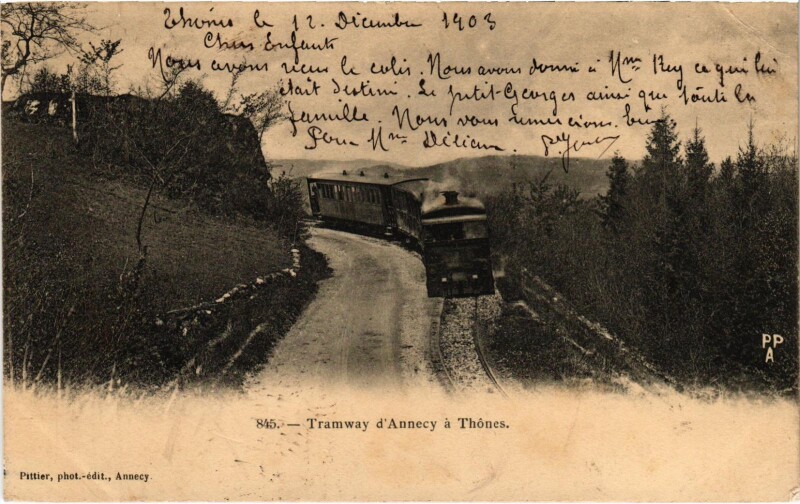 Thônes le 12 Décembre 1903
Chers Enfants
Nous avons recu le colis. Nous avons donné à Mme Rey ce qui lui
était destiné. Le petit Georges ainsi que toute la
famille. Nous vous remercions bien
Pour Mme Délian
PP
A
845. — Tramway d'Annecy à Thônes.
Pittier, phot.-édit., Annecy